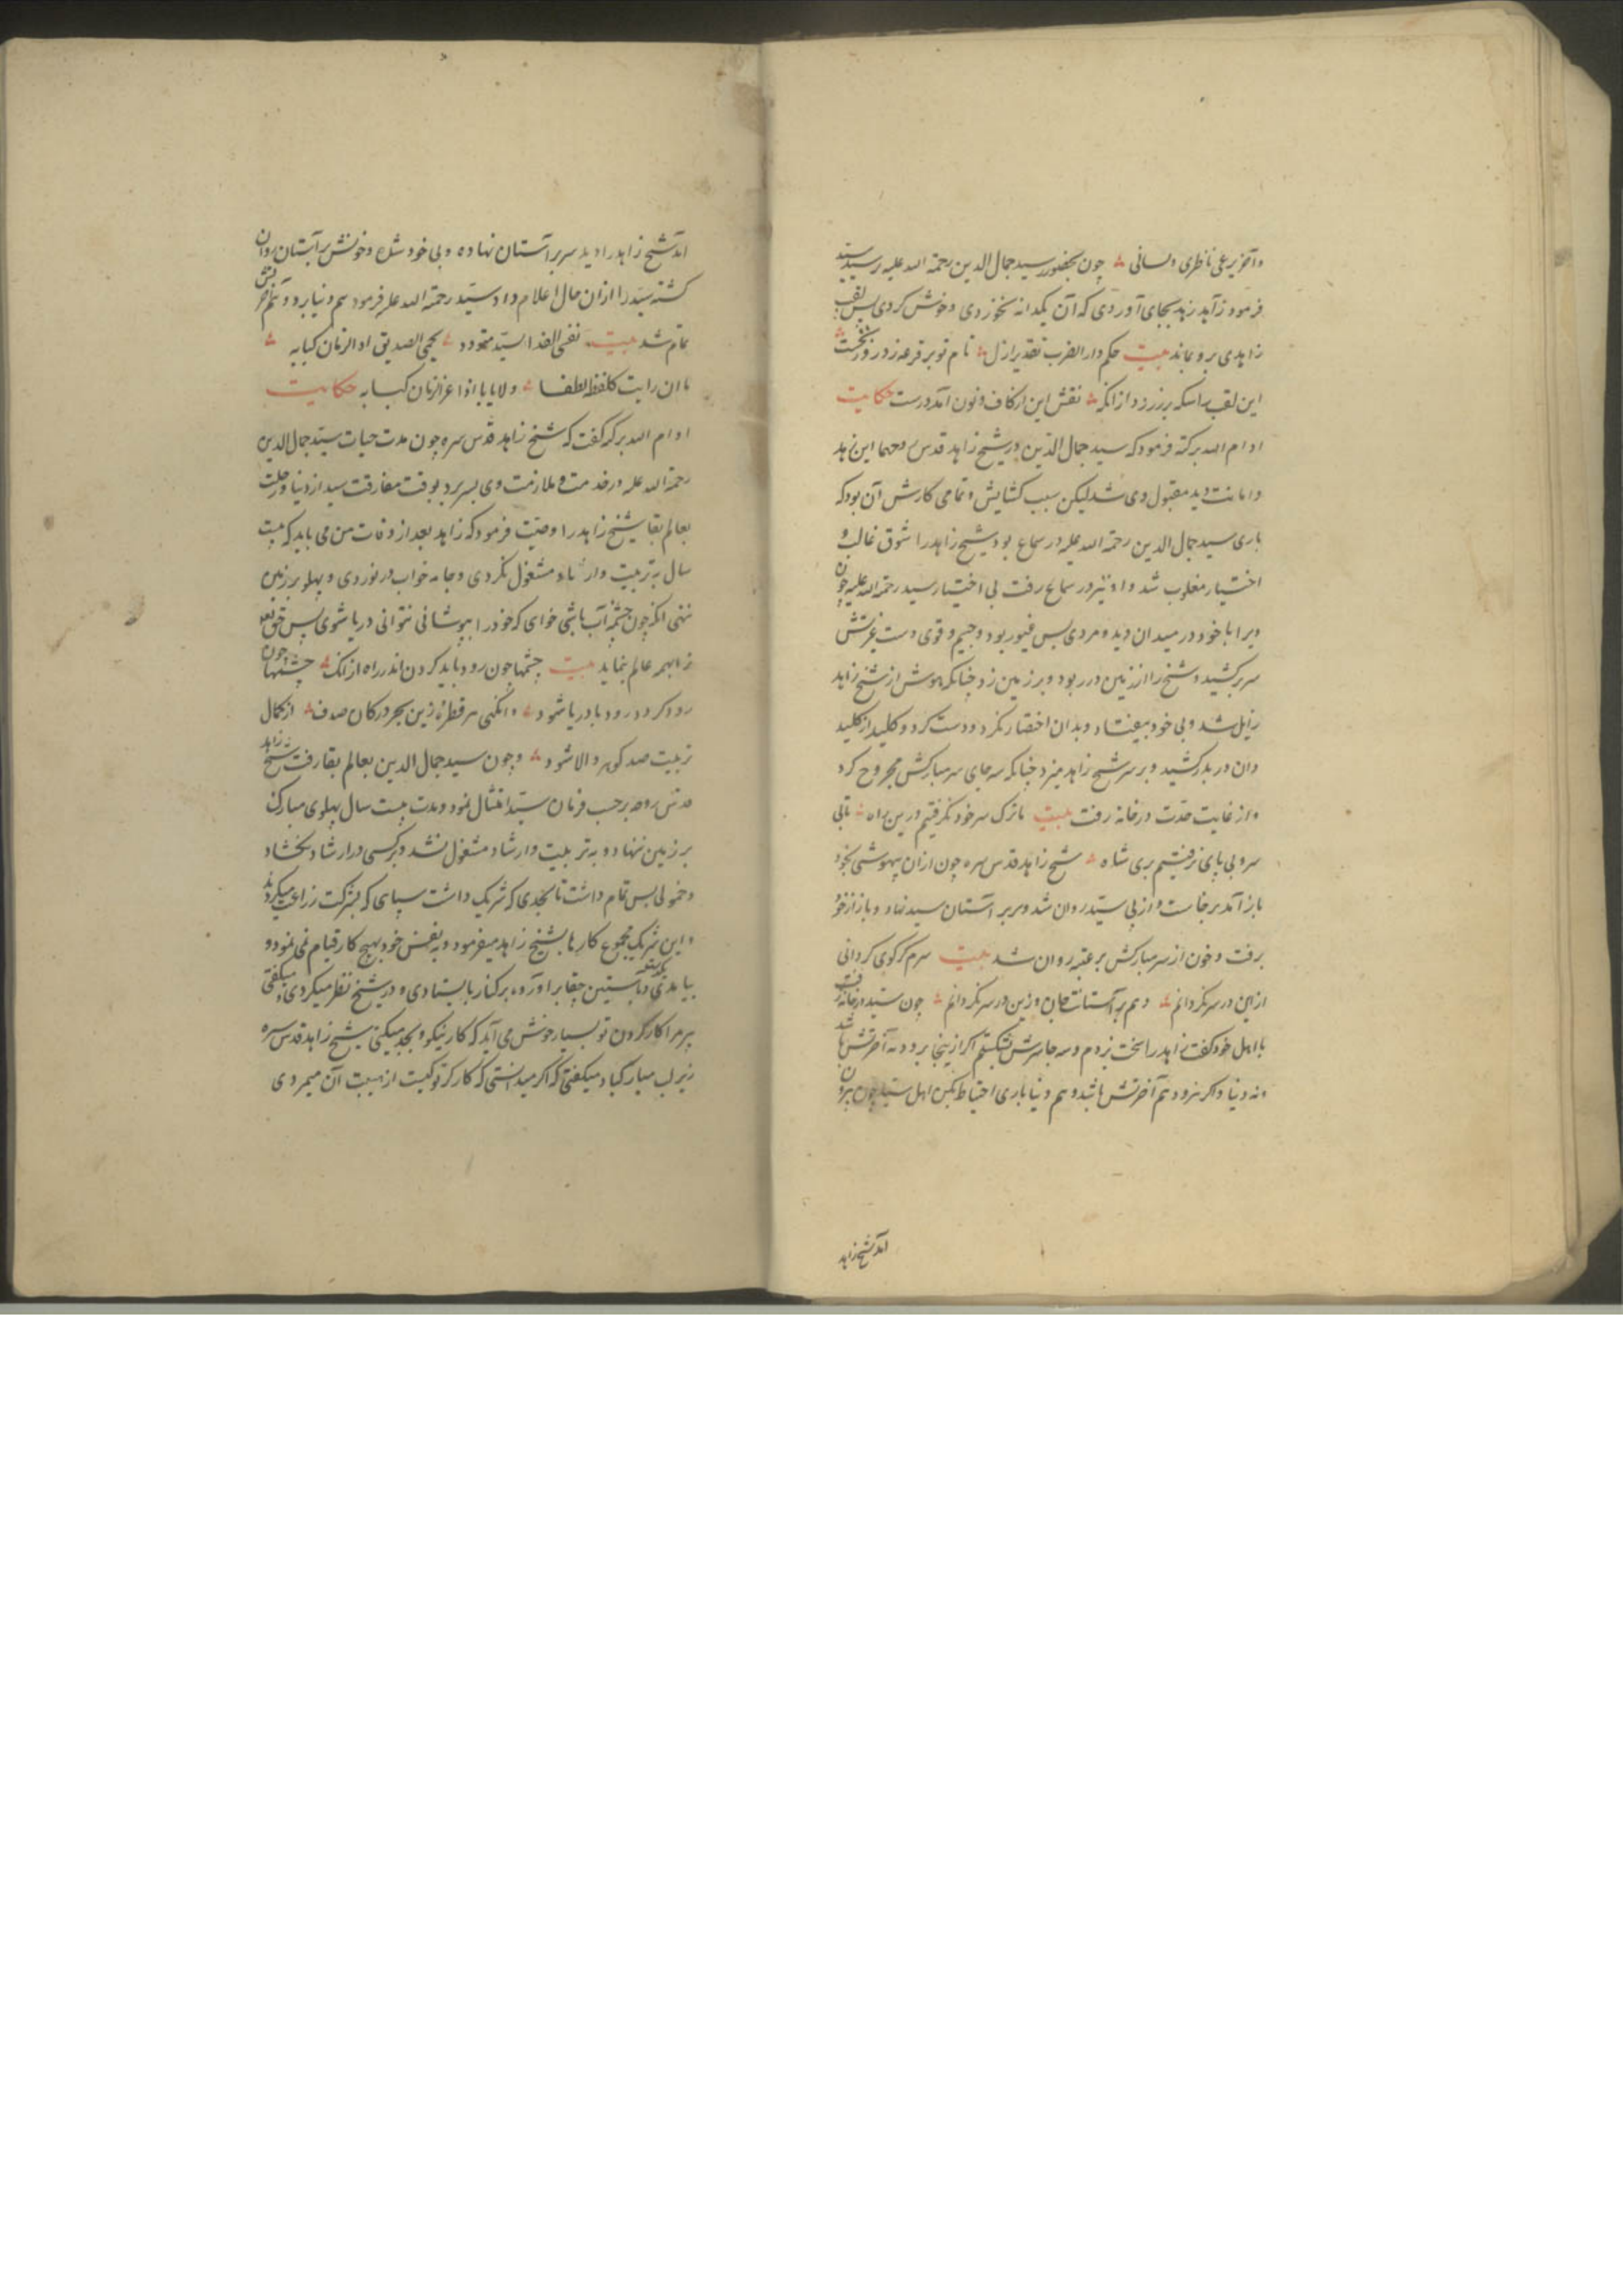 وآخر یرعی ناظری ولسانی چون بحضور سید جمال الدین رحمة الله علیه رسید سید
فرمود زاهد زهد بجای آوردی که آن یکدانه نخوردی وخوش کردی پس لقب
زاهدی برو بماند بیت حکم دار الضرب تقدیر ازل نام تو بر قرعه زد روز نخست
این لقب را سکه بر زر زد از انکه نقش این از کاف ونون آمد درست حکایت
ادام الله برکته فرمود که سید جمال الدین در شیخ زاهد قدس روحهما این زهد
وامانت دید مقبول وی شد لیکن سبب کشایش وتمامی کارش آن بود که
باری سید جمال الدین رحمة الله علیه در سماع بود شیخ زاهد را شوق غالب و
اختیار مغلوب شد واو نیز در سماع رفت بی اختیار سید رحمة الله علیه چون
ویرا با خود در میدان دید ومردی بس غیور بود وجیم وقوی دست غیرتش
سر بر کشید وشیخ را از زمین در ربود وبر زمین زد چنانکه هوش از شیخ زاهد
زایل شد وبی خود بیفتاد وبدان اختصار نکرد ودست کرد وکلید از کلید
دان در بدر کشید وبر سر شیخ زاهد میزد چنانکه سه جای سر مبارکش مجروح کرد
واز غایت حدت در خانه رفت بیت تا ترک سر خود نکرفتیم درین راه تا بی
سر وبی پای نرفتیم بری شاه شیخ زاهد قدس سره چون ازان بیهوشی بخود
باز آمد برخاست واز پی سید روان شد وسر بر آستان سید نهاد وباز از خود
برفت وخون از سر مبارکش بر عتبه روان شد بیت سرم کر کوی کردانی
ازین در سر نکردانم وهم بر آستانت جان وزین در سر نکردانم چون سید در خانه رفت
با اهل خود کفت زاهد را سخت بزدم وسه جا سرش بشکستم اکر ازینجا برود نه آخرتش باشد
ونه دنیا واکر نرود هم آخرتش باشد وهم دنیا باری احتیاط بکن اهل سید چون بیرون
آمد شیخ زاهد
آمد شیخ زاهد را دید سر بر آستان نهاده وبی خود شده وخونش بر آستان روان
کشته سید را ازان حال اعلام داد سید رحمة الله علیه فرمود هم دنیا برد وهم آخرت پس
تمام شد بیت نفسی الفدا لسید متودد یحمی الصدیق اذا الزمان کبابه
ما ان رایت کلفظه لطفا ولا بابا اذا عز الزمان کبابه حکایت
ادام الله برکته کفت که شیخ زاهد قدس سره چون مدت حیات سید جمال الدین
رحمة الله علیه در خدمت وملازمت وی بسر برد بوقت مفارقت سید از دنیا ورحلت
بعالم بقا شیخ زاهد را وصیت فرمود که زاهد بعد از وفات من می باید که بیست
سال به تربیت وارشاد مشغول نکردی وجامه خواب در نوردی وپهلو بر زمین
ننهی انکه چون چشمه آب باشی خوای که خود را بپوشانی نتوانی دریا شوی پس حق تعالی
ترا بهمه عالم بنماید بیت چشمها چون رود باید کردن اندر راه از انک چشمها چون
رود کردد رود با دریا شود وانکهی هر قطره زین بحر در کان صدف از کمال
تربیت صد کوهر والا شود وچون سید جمال الدین بعالم بقا رفت شیخ زاهد
قدس روحه بر حسب فرمان سید امتثال نمود ومدت بیست سال پهلوی مبارک
بر زمین ننهاد وبه تربیت وارشاد مشغول نشد وبر کسی در ارشاد نکشاد
وخمولی بس تمام داشت تا بحدی که شریک داشت سپاهی که بشرکت زراعت میکردند
واین شریک مجموع کارها بشیخ زاهد میفرمود وبه نفس خود بهیچ کار قیام نمی نمود و
بیامدی ودستین چقا بر آورده بر کنار بایستادی ودر شیخ نظر میکردی ومیکفتی
پیر مرا کار کردن تو بسیار خوش می آید که کار نیکو وبجد میکنی شیخ زاهد قدس سره
زیر لب مبارک باد میکفتی که اکر میدانستی که کارکر تو کیست از هیبت آن میمردی